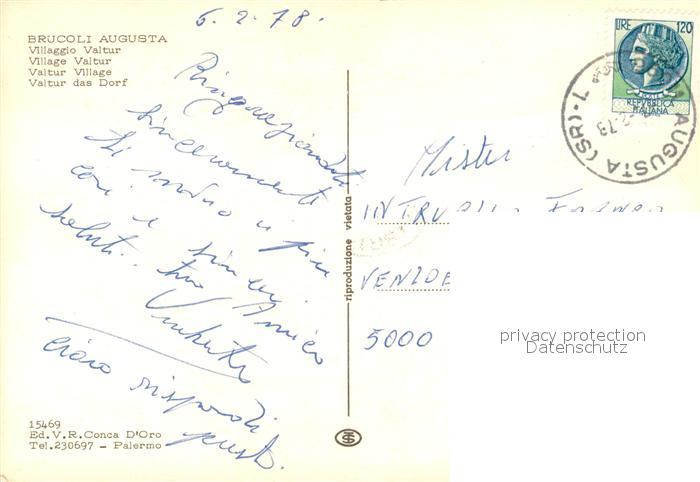 6.2.78.
BRUCOLI AUGUSTA
Villaggio Valtur
Village Valtur
Valtur Village
Valtur das Dorf
Ringraziando
sinceramente
ti
con i
saluti. tuo Amico
Umberto
ciao rispondi
presto.
15469
Ed.V.R.Conca D'Oro
Tel.230697 - Palermo
riproduzione vietata
LIRE 120
REPUBBLICA
ITALIANA
AUGUSTA (SR)
Mister
5000
privacy protection
Datenschutz